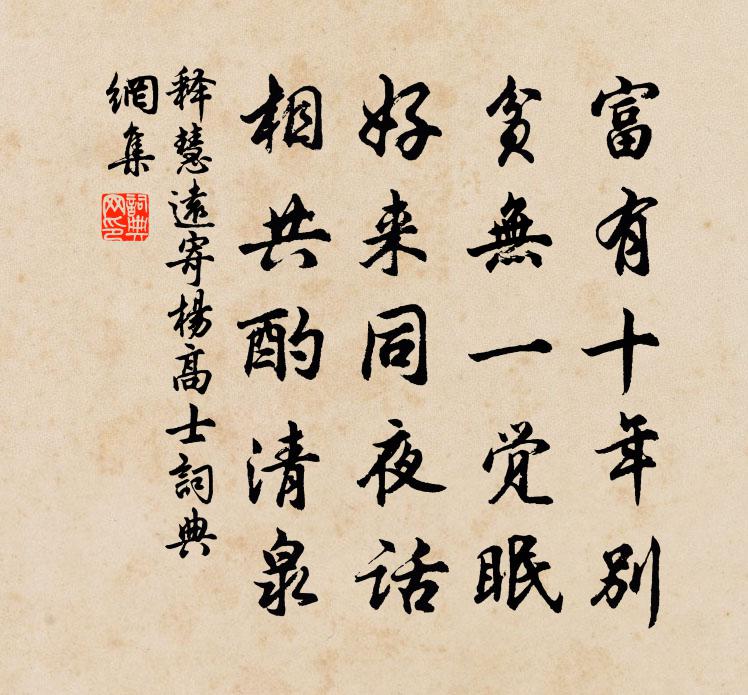 富有十年别
贫無一觉眠
好来同夜话
相共酌清泉
释慧遠寄楊高士詞典
網集
詞典
网印